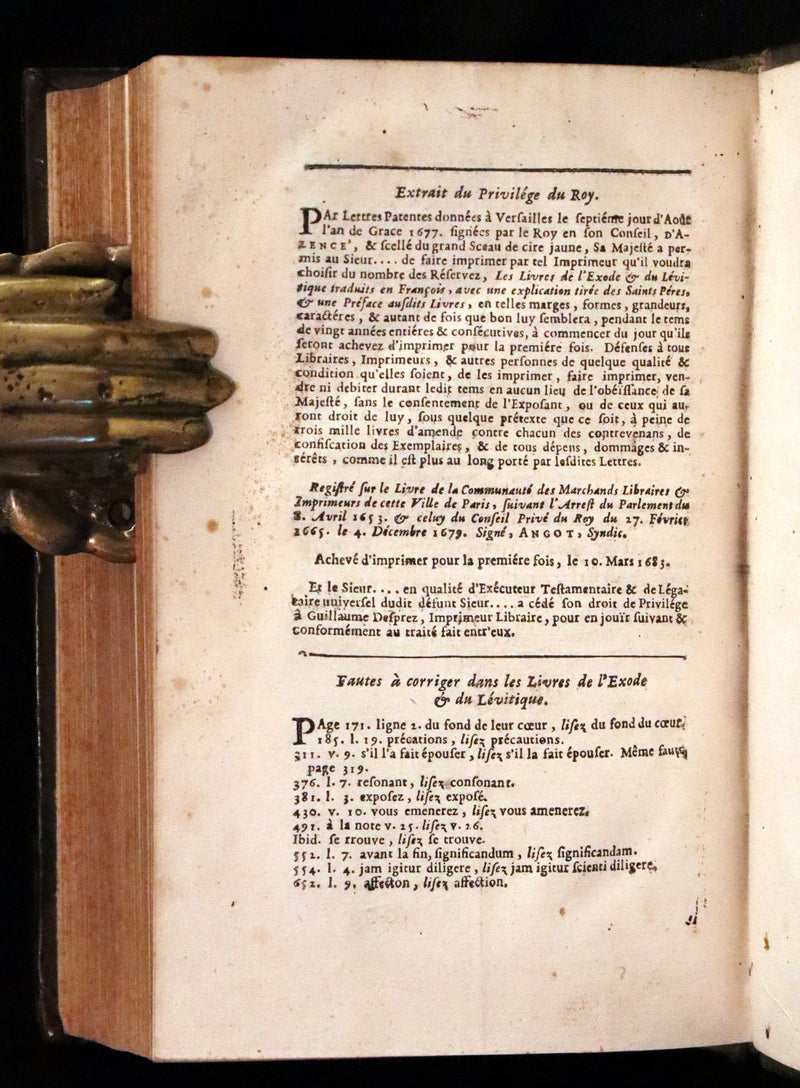 Extrait du Privilége du Roy.
PAr Lettres Patentes données à Verſailles le ſeptiéme jour d'Août
l'an de Grace 1677. ſignées par le Roy en ſon Conſeil, D'A-
LENCE', & ſcellé du grand Sceau de cire jaune, Sa Majeſté a per-
mis au Sieur.... de faire imprimer par tel Imprimeur qu'il voudra
choiſir du nombre des Réſervez, Les Livres de l'Exode & du Lévi-
tique traduits en François, avec une explication tirée des Saints Péres,
& une Préface auſdits Livres, en telles marges, formes, grandeurs,
caractéres, & autant de fois que bon luy ſemblera, pendant le tems
de vingt années entiéres & conſécutives, à commencer du jour qu'ils
ſeront achevez d'imprimer pour la premiére fois. Défenſes à tous
Libraires, Imprimeurs, & autres perſonnes de quelque qualité &
condition qu'elles ſoient, de les imprimer, faire imprimer, ven-
dre ni debiter durant ledit tems en aucun lieu de l'obéïſſance de ſa
Majeſté, ſans le conſentement de l'Expoſant, ou de ceux qui au-
ront droit de luy, ſous quelque prétexte que ce ſoit, à peine de
trois mille livres d'amende contre chacun des contrevenans, de
confiſcation des Exemplaires, & de tous dépens, dommâges & in-
térêts, comme il eſt plus au long porté par leſdites Lettres.
Regiſtré ſur le Livre de la Communauté des Marchands Libraires &
Imprimeurs de cette Ville de Paris, ſuivant l'Arreſt du Parlement du
8. Avril 1653. & celuy du Conſeil Privé du Roy du 27. Février
1665. le 4. Décembre 1679. Signé, ANGOT, Syndic.
Achevé d'imprimer pour la premiére fois, le 10. Mars 1683.
Et le Sieur.... en qualité d'Exécuteur Teſtamentaire & de Léga-
taire univerſel dudit défunt Sieur.... a cédé ſon droit de Privilége
à Guillaume Deſprez, Imprimeur Libraire, pour en jouïr ſuivant &
conformément au traité fait entr'eux.
Fautes à corriger dans les Livres de l'Exode
& du Lévitique.
PAge 171. ligne 2. du fond de leur cœur, liſez du fond du cœur.
185. l. 19. précations, liſez précautions.
311. v. 9. s'il l'a fait épouſer, liſez s'il la fait épouſer. Même faute
page 319.
376. l. 7. reſonant, liſez conſonant.
381. l. 3. expoſez, liſez expoſé.
430. v. 10. vous emenerez, liſez vous amenerez.
491. à la note v. 25. liſez v. 26.
Ibid. ſe rrouve, liſez ſe trouve.
552. l. 7. avant la fin, ſignificandum, liſez ſignificandam.
554. l. 4. jam igitur diligere, liſez jam igitur ſcienti diligere.
652. l. 9. affecton, liſez affection.